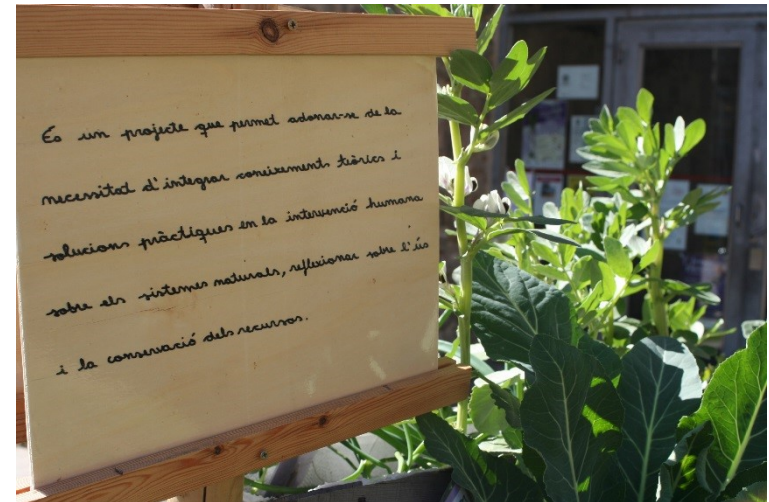 És un projecte que permet adonar-se de la
necessitat d'integrar coneixements teòrics i
solucions pràctiques en la intervenció humana
sobre els sistemes naturals, reflexionar sobre l'ús
i la conservació dels recursos.